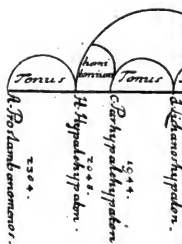 Tonus
hemi
tonium
Tonus
A. Proslambanomenos.
2304.
H. Hypatehypaton.
2048.
C. Parhypatehypaton
1944.
D. Lichanoshypaton.